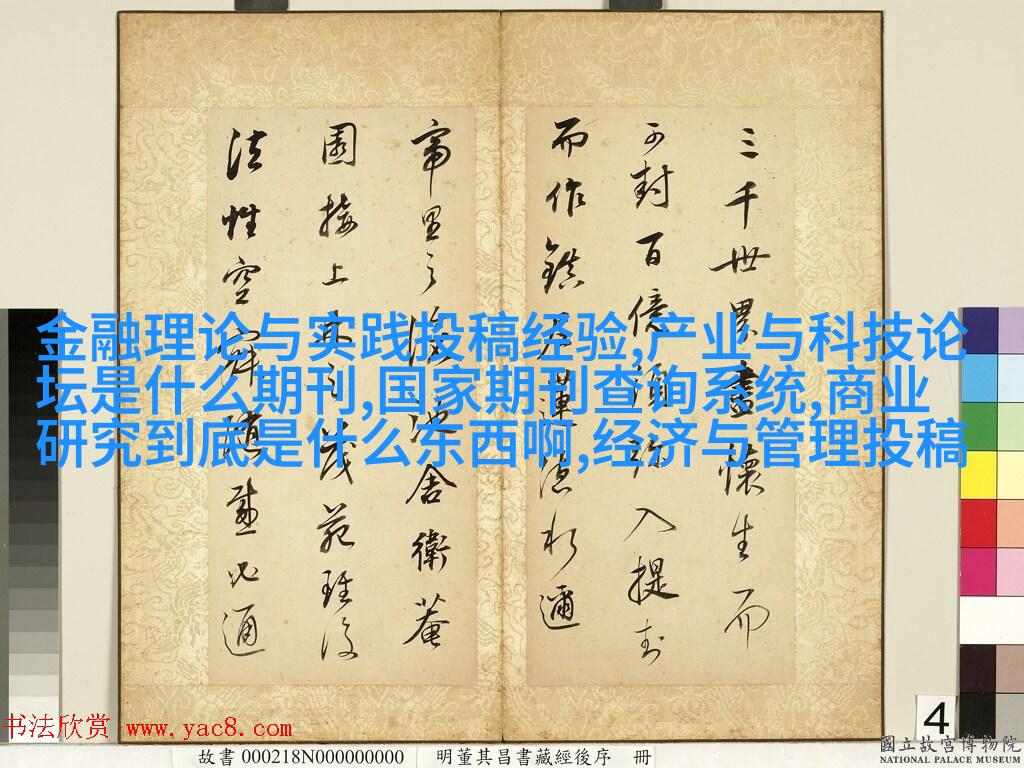 三千世界盡懷生而
可封百億須彌入提封
而作鎮蓮於邇
帝里之池舍衛菴
園接上林之茂苑雖復
法性空寂隨感必通
金融理论与实践投稿经验,产业与科技论
坛是什么期刊,国家期刊查询系统,商业
研究到底是什么东西啊,经济与管理投稿
书法欣赏 www.yac8.com
故書 000218N000000000 明董其昌書藏經後序 冊
4
國立故宮博物院
NATIONAL PALACE MUSEUM